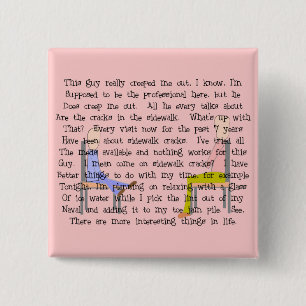 This guy really creeped me out. I know, I'm
Supposed to be the professional here, but he
Does creep me out. All he every talks about
Are the cracks in the sidewalk. What's up with
That? Every visit now for the past 7 years
Have been about sidewalk cracks. I've tried all
The meds available and nothing works for this
Guy. I mean come on sidewalk cracks? I have
Better things to do with my time, for example
Tonight. I'm planning on relaxing with a glass
Of ice water while I pick the lint out of my
Naval and adding it to my toe jam pile. See,
There are more interesting things in life.